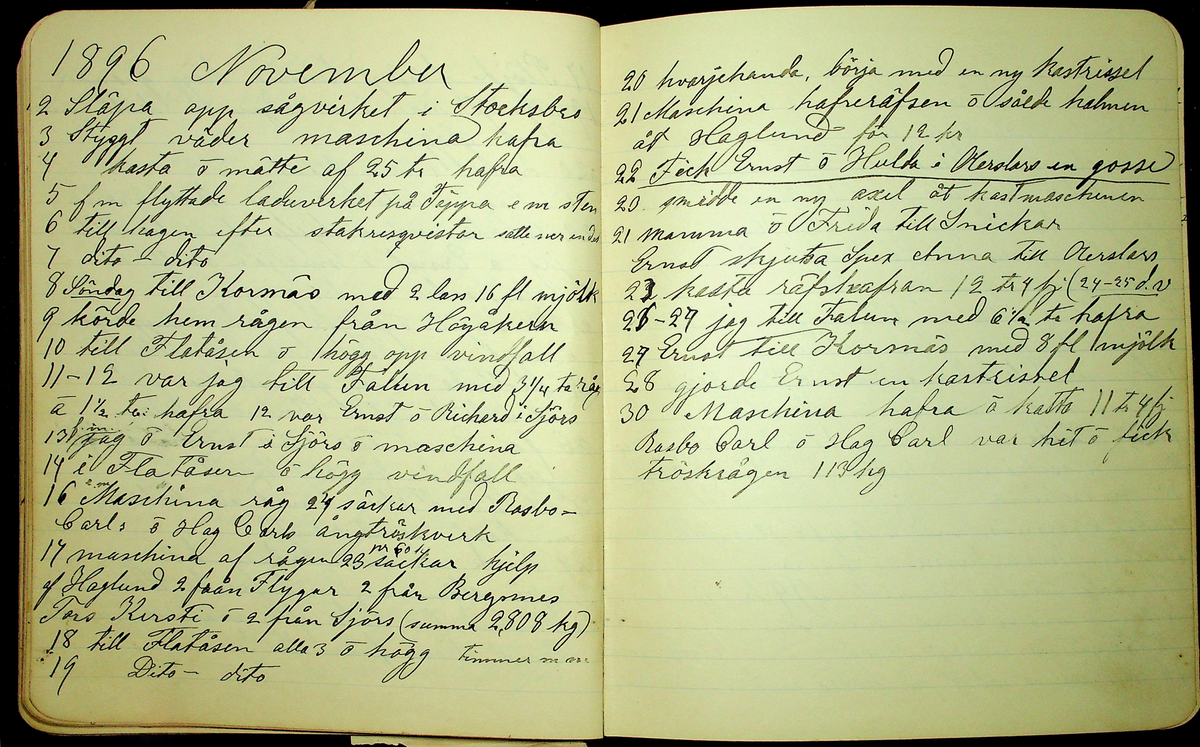 1896 November
2 Släpa opp sågvirket i Stocksbro
3 Styggt väder maschina hafra
4 kasta ō mätte af 25 tr hafra
5 f m flyttade laduvirket på Täppa e m sten
6 till hagen efter stakresqvistar satte ner
7 dito – dito
8 Söndag till Korsnäs med 2 lass 16 fl mjölk
9 körde hem rågen från Högåkern
10 till Flatåsen ō högg opp vindfall
11–12 var jag till Falun med 3 1/4 tr råg
ā 1 1/2 tr: hafra 12 var Ernst ō Richard i Sjörs
13 f.m. jag ō Ernst i Sjörs ō maschina
14 i Flatåsen ō högg vindfall
16 Maschina råg 24 säckar med Rosbo–
Carls ō Hag Carls ångtröskverk
17 maschina af rågen 23 säckar hjelp
af Haglund 2 från Flygar 2 från Bergsnnes
Tors Kersti ō 2 från Sjörs (summa 2,808 kg)
18 till Flatåsen alla 3 ō högg timmer
19 Dito – dito
20 hvarjehanda, börja med en ny kastrissel
21 Maschina hafreräfsen ō sålde halmen
åt Haglund för 12 kr
22 Feck Ernst ō Hulda i Olerslars en gosse
20 smidde en ny axel åt kastmaschinen
21 Mamma ō Frida till Snickar
Ernst skjutsa Spex Anna till Olerslars
23 kasta räfshafran 12 tr 4 fj (24–25 d.v
26–27 jag till Falun med 6 1/2 tr hafra
27 Ernst till Korsnäs med 8 fl mjölk
28 gjorde Ernst en kastrissel
30 Maschina hafra ō kasta 11 tr 4 fj
Rosbo Carl ō Hag Carl var hit ō feck
tröskrågen 113 kg